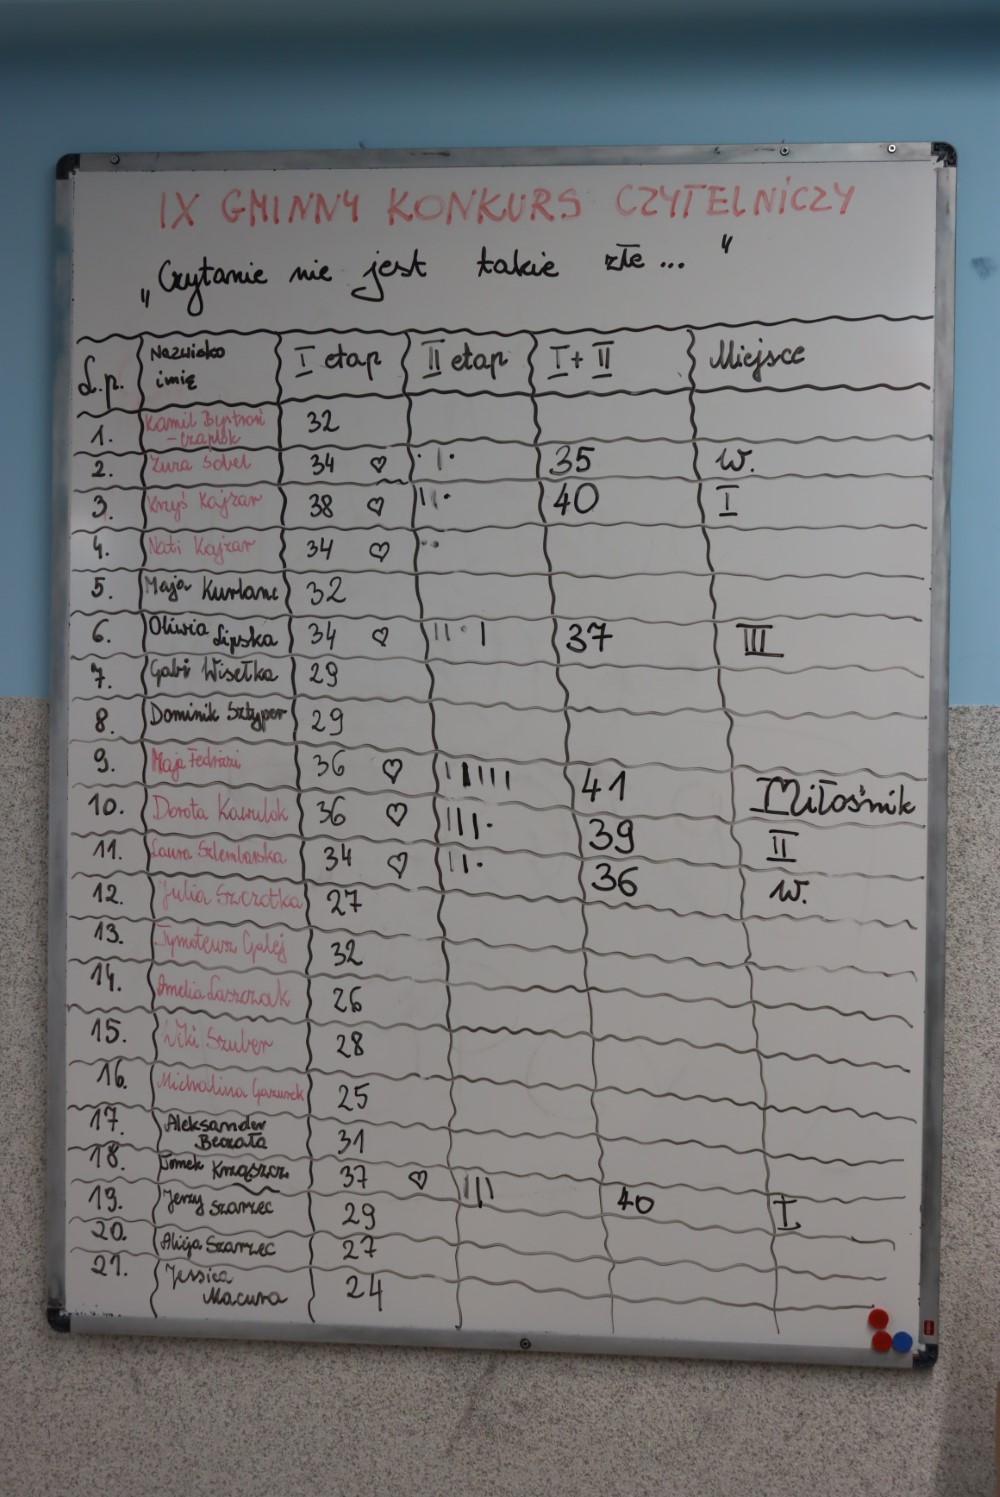 IX GMINNY KONKURS CZYTELNICZY
„Czytanie nie jest takie złe..."
L.p. Nazwisko imię I etap II etap I + II Miejsce
1. Kamil Bystroń - Czaplok 32
2. Zuza Sobel 34 ♡ · | · 35 w.
3. Krzyś Kajzar 38 ♡ || · 40 I
4. Nati Kajzar 34 ♡ · ·
5. Maja Kurlanc 32
6. Oliwia Lipska 34 ♡ || · | 37 III
7. Gabi Wisełka 29
8. Dominik Sztyper 29
9. Maja Fedrizzi 36 ♡ ||||| 41 Miłośnik
10. Dorota Kawulok 36 ♡ ||| · 39 II
11. Laura Szlembarska 34 ♡ || · 36 w.
12. Julia Szczotka 27
13. Tymoteusz Galej 32
14. Amelia Laszczak 26
15. Wiki Szuber 28
16. Michalina 25
17. Aleksander Beczała 31
18. Tomek Krząszcz 37 ♡ ||| 40 I
19. Jerzy Szarzec 29
20. Alicja Szarzec 27
21. Jessica Macura 24